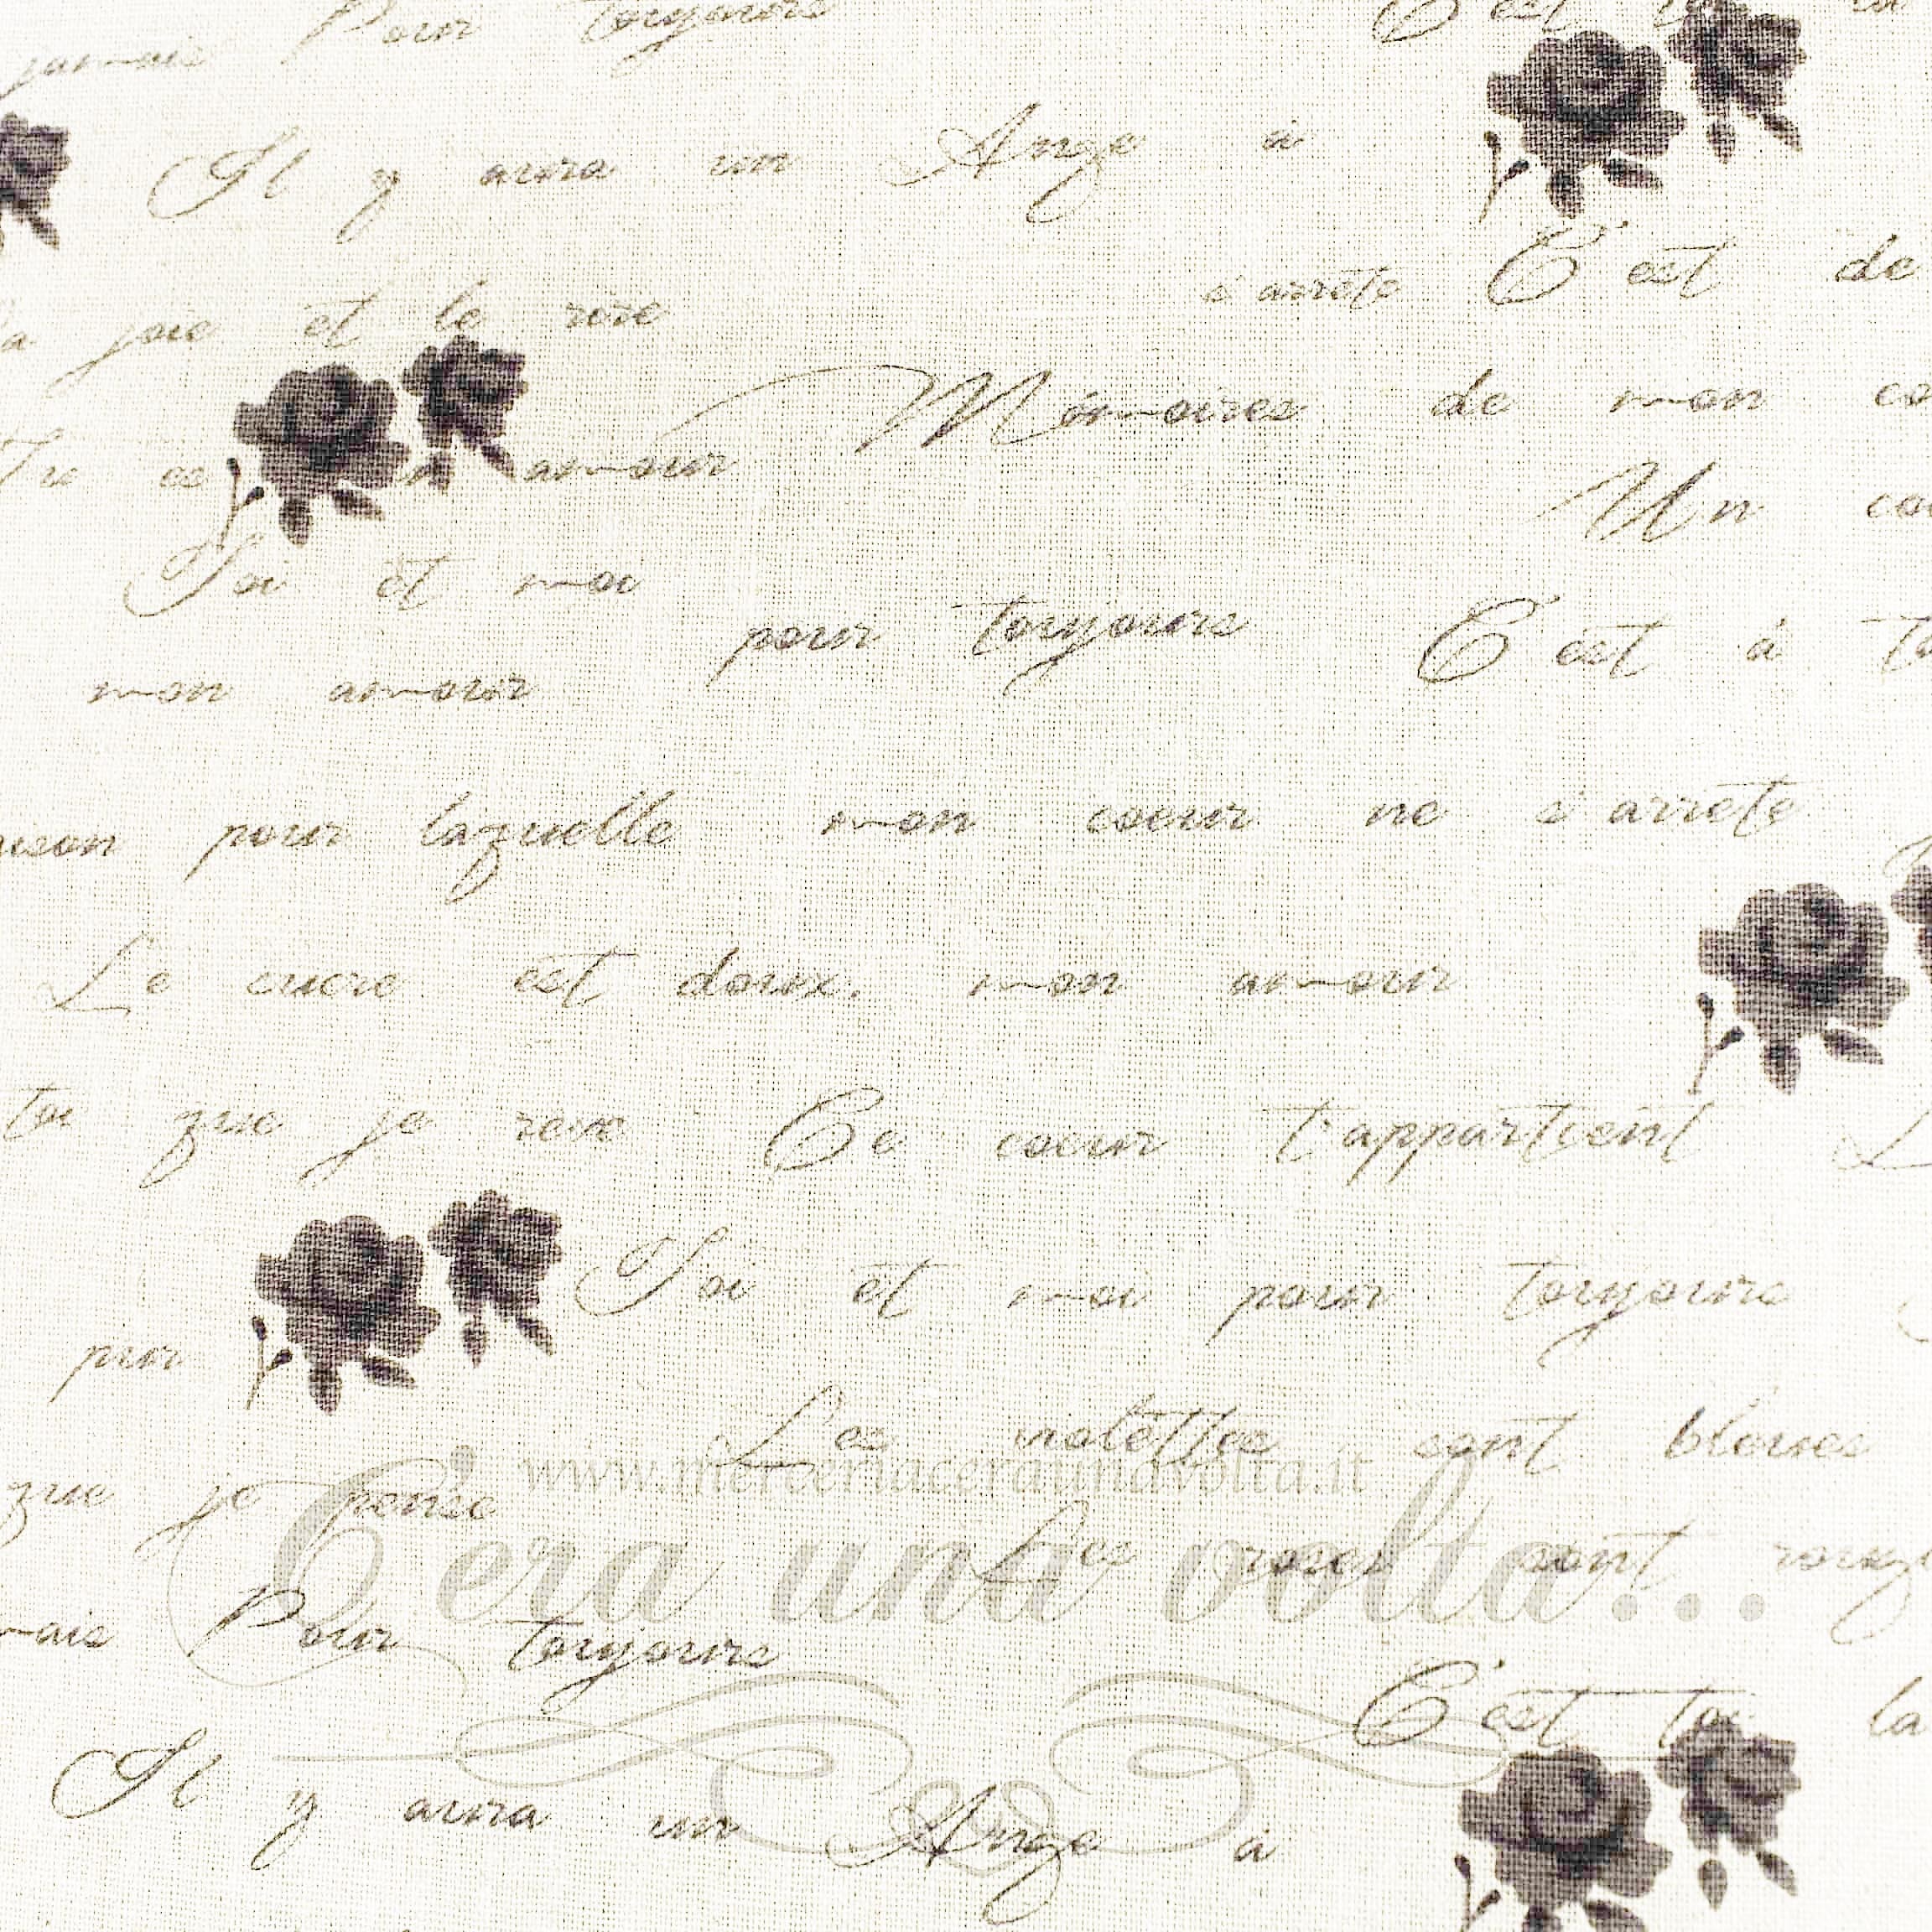 jamais Pour toujours C'est
Il y aura un Ange à
la joie et le rose s'arrête C'est de
Mémoires de mon
Tu es amour Un
Toi et moi pour toujours C'est à
mon amour
pour laquelle mon coeur ne s'arrête
Le sucre est doux, mon amour
toi que je reve Ce coeur t'appartient
Toi et moi pour toujours
pur
Les violettes sont bleues
www.merceriaceraunavolta.it
que je pense
C'era una volta...
Les roses sont
Pour toujours
C'est toi la
Il y aura un Ange à